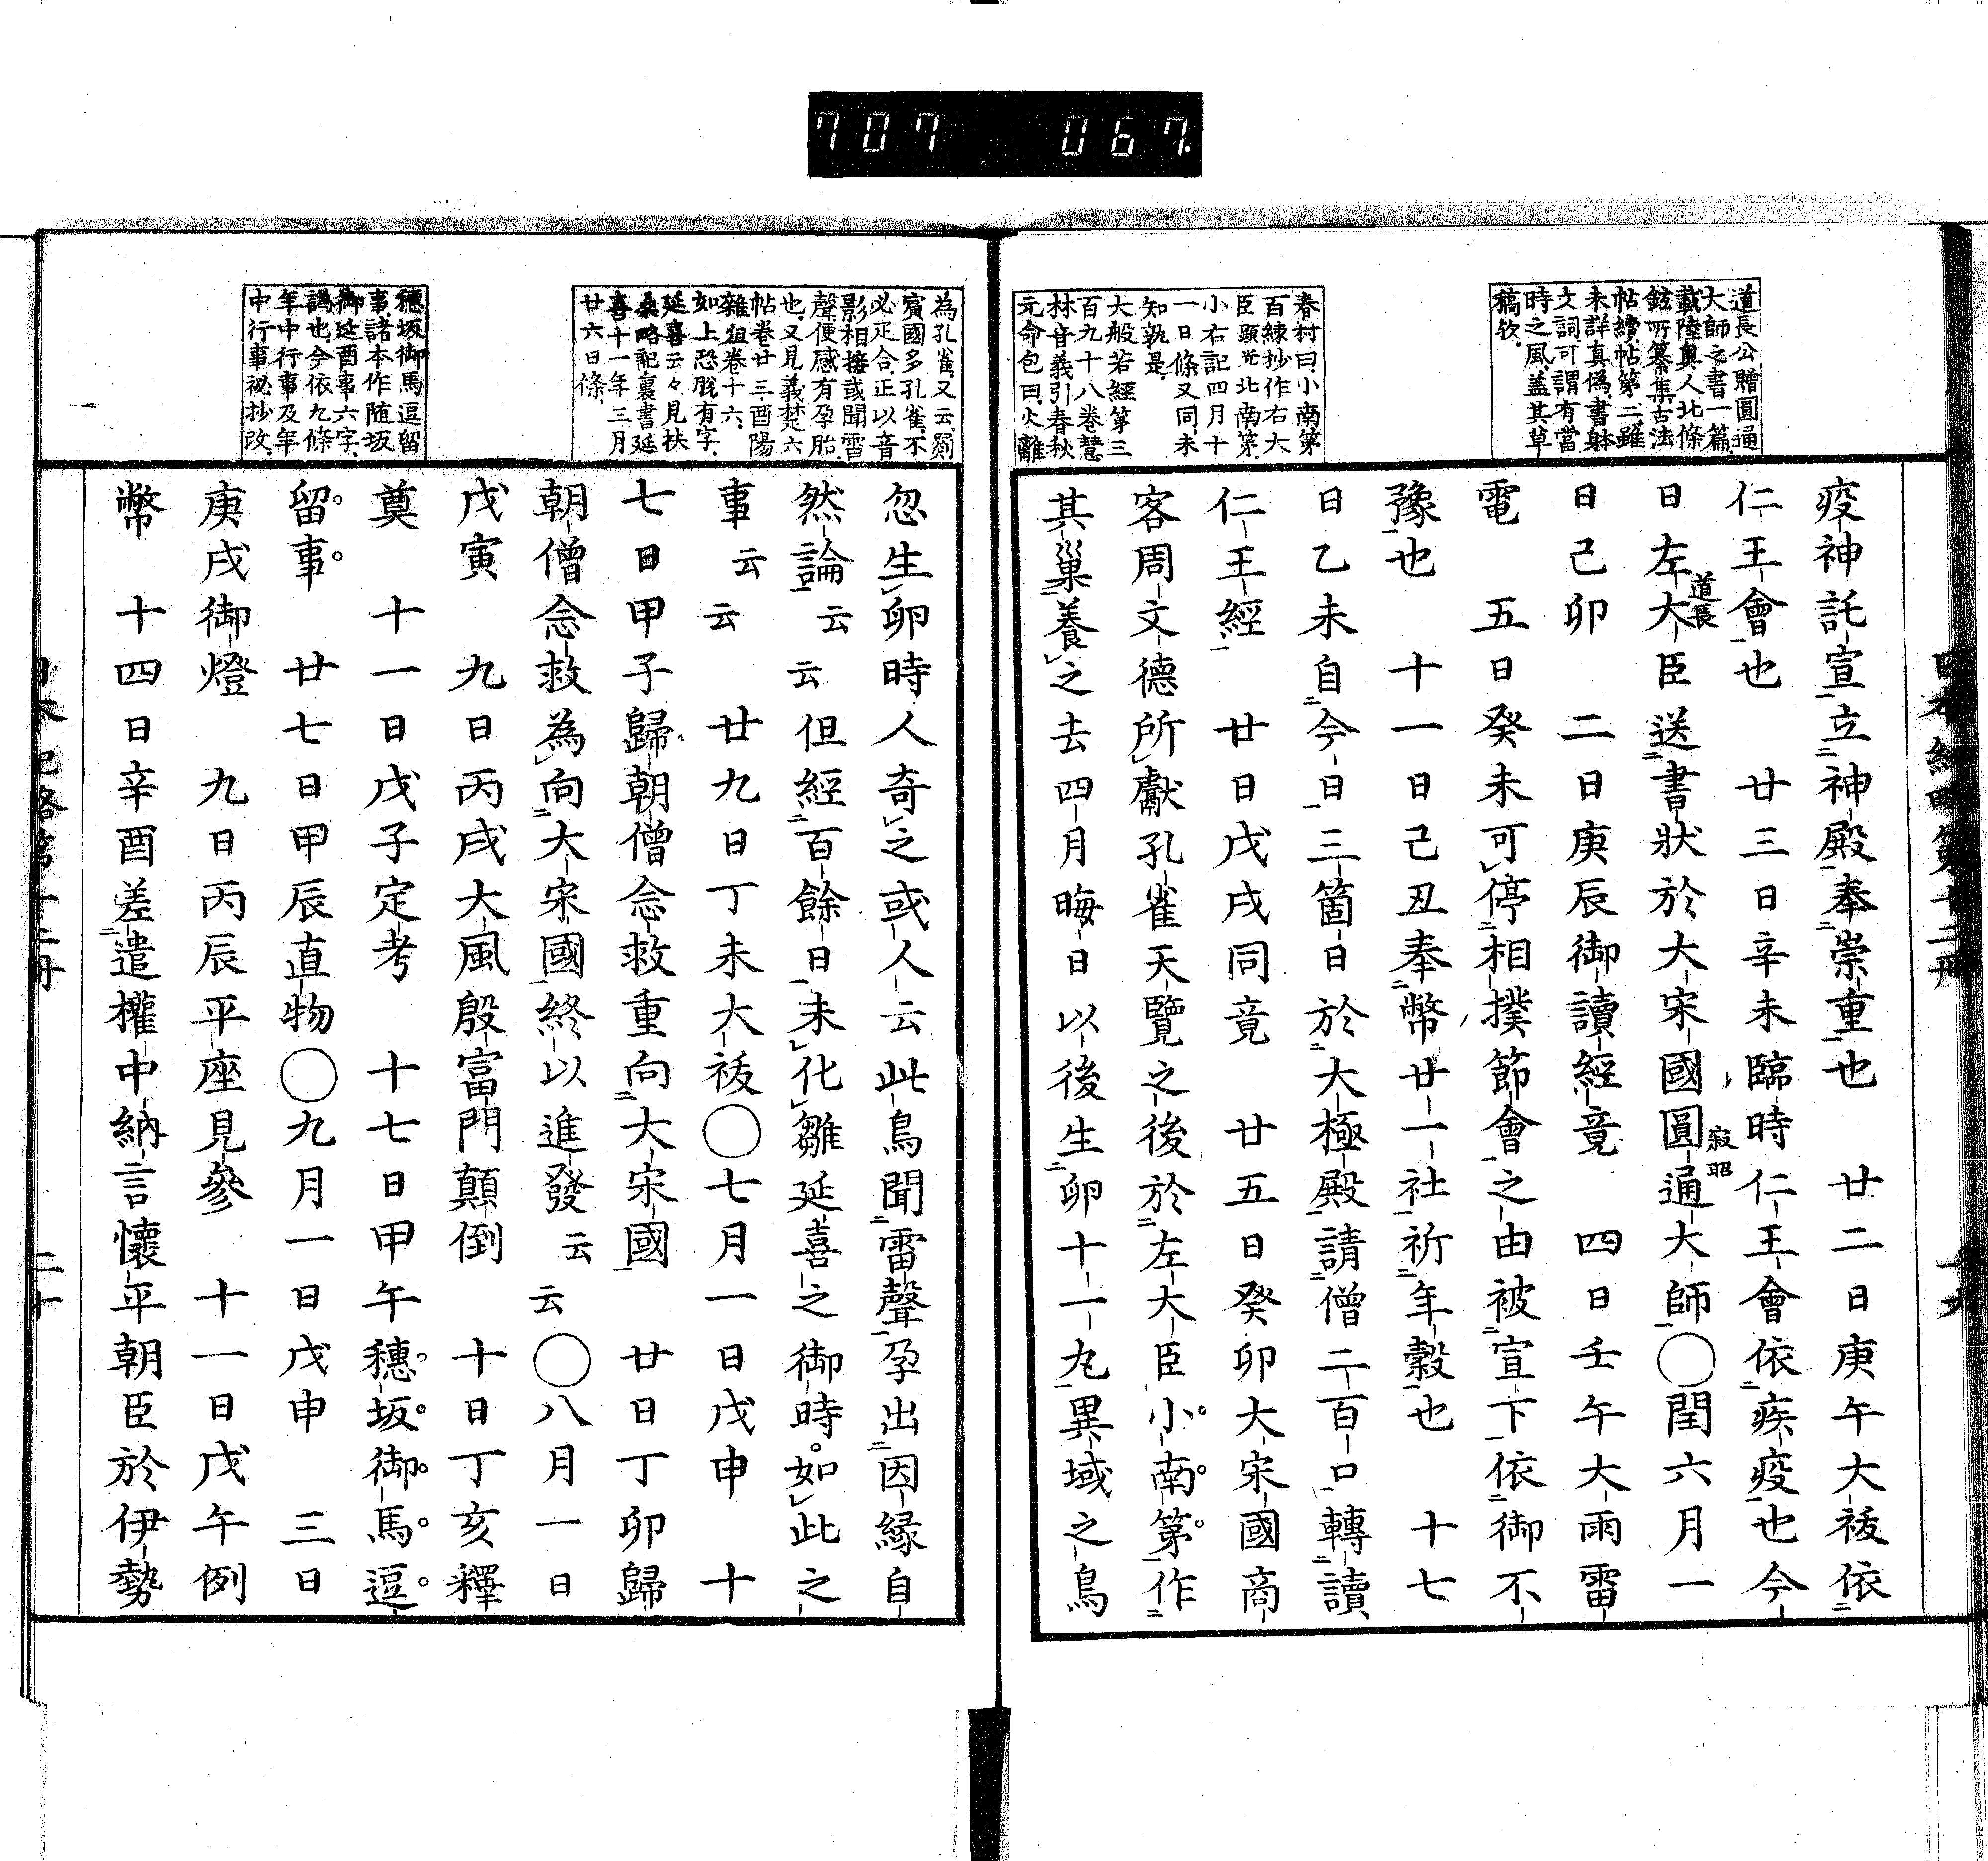 707 067.
道長公贈圓通
大師之書一篇、
載陸奧人北條
鉉所纂集古法
帖續帖第二、雖
未詳真偽、書躰
文詞可謂有當
時之風、蓋其草
稿欤、
春村曰、小南第
百練抄作右大
臣顕光北南第、
小右記四月十
一日條又同、未
知孰是、
大般若經第三
百九十八卷慧
林音義引春秋
元命包曰、火離
疫神託宣立神殿奉崇重也　廿二日庚午大祓依
仁王會也　廿三日辛未臨時仁王會依疾疫也今
日左大臣送書狀於大宋國圓通大師〇閏六月一
道長
寂昭
日己卯　二日庚辰御讀經竟　四日壬午大雨雷
電　五日癸未可停相撲節會之由被宣下依御不
豫也　十一日己丑奉幣廿一社祈年穀也　十七
日乙未自今日三箇日於大極殿請僧二百口轉讀
仁王經　廿日戊戌同竟　廿五日癸卯大宋國商
客周文德所獻孔雀天覽之後於左大臣小南第作
其巢養之去四月晦日以後生卵十一丸異域之鳥
為孔雀、又云、罽
賓國多孔雀、不
必疋合、正以音
影相接、或聞雷
聲便感有孕胎
也、又見義楚六
帖卷廿三酉陽
雜俎卷十六、
如上恐脫有字、
延喜云々見扶
桑略記裏書延
喜十一年三月
廿六日條、
穗坂御馬逗留
事、諸本作随坂
御延酉事六字、
譌也、今依九條
年中行事及年
中行事祕抄改、
忽生卵時人奇之或人云此鳥聞雷聲孕出因緣自
然論云云但經百餘日未化雛延喜之御時如此之
事云云　廿九日丁未大祓〇七月一日戊申　十
七日甲子歸朝僧念救重向大宋國　廿日丁卯歸
朝僧念救為向大宋國終以進發云云〇八月一日
戊寅　九日丙戌大風殷富門顛倒　十日丁亥釋
奠　十一日戊子定考　十七日甲午穗坂御馬逗
留事　廿七日甲辰直物〇九月一日戊申　三日
庚戌御燈　九日丙辰平座見參　十一日戊午例
幣　十四日辛酉差遣權中納言懷平朝臣於伊勢